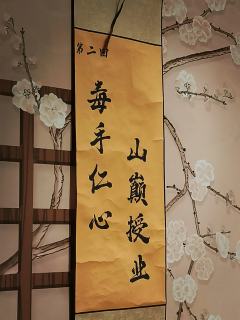 第二回
毒手仁心
山巅授业